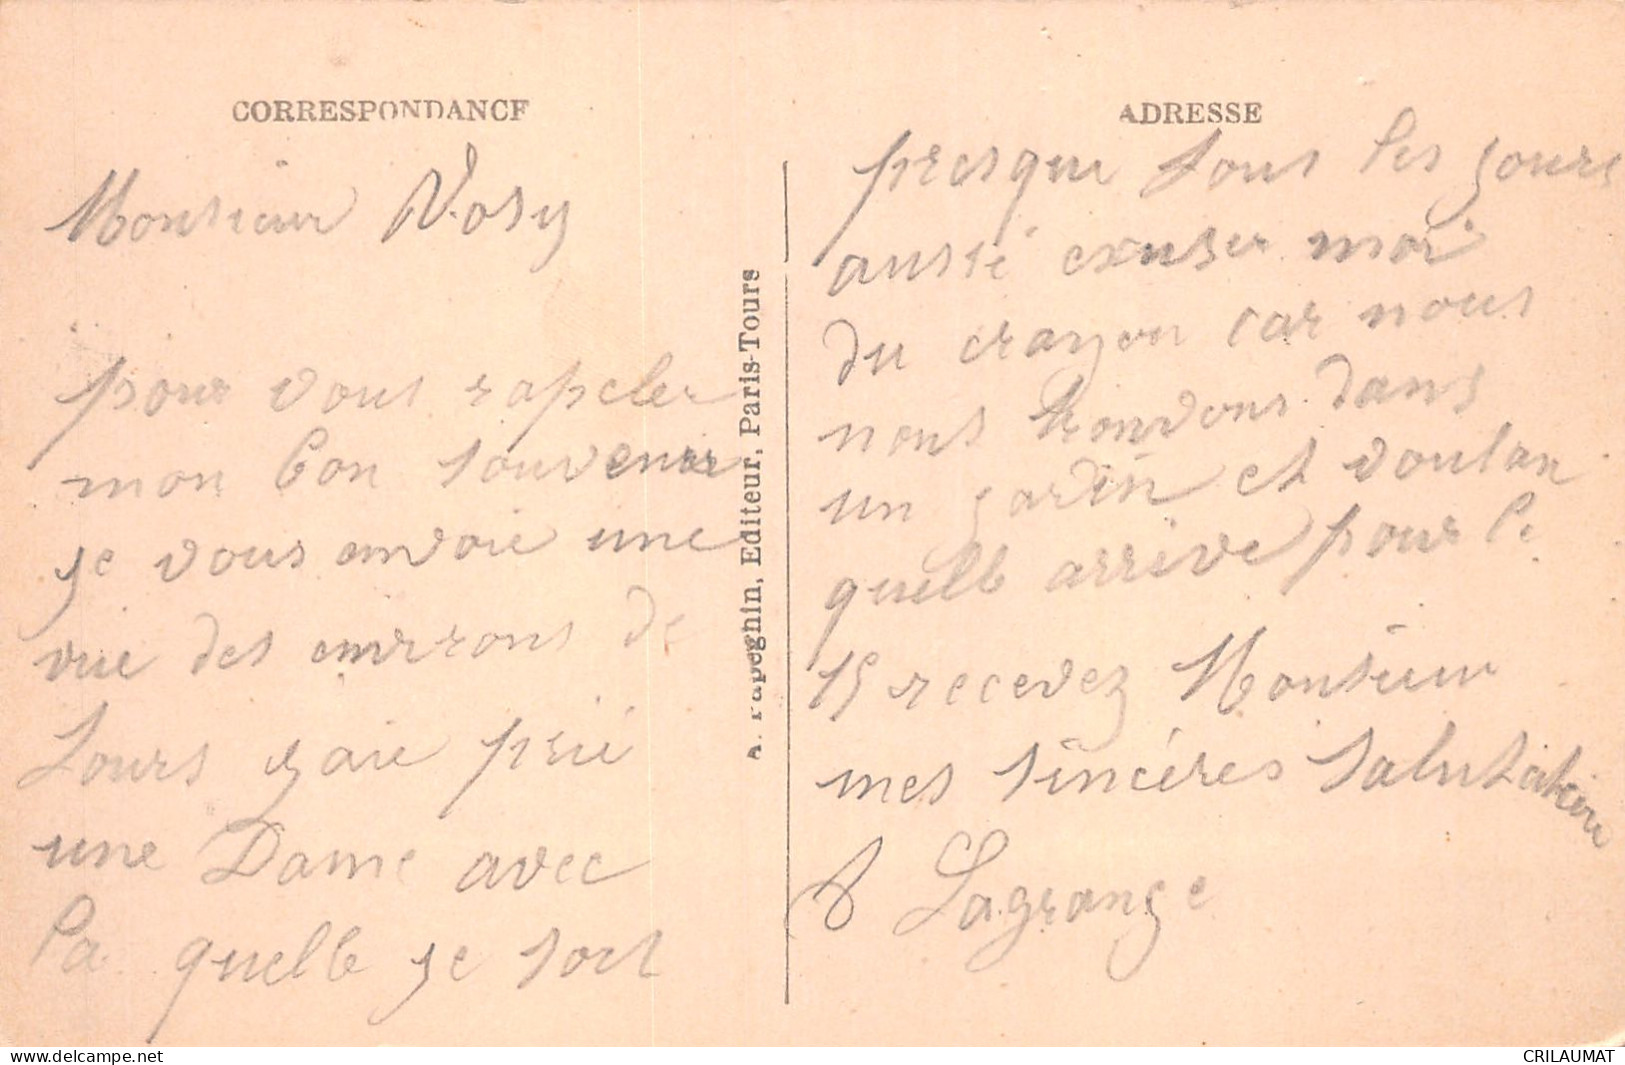 CORRESPONDANCE
Monsieur Vosy
pour vous rapeler
mon bon souvenir
je vous envoie une
vue des environs de
Tours jaie prié
une Dame avec
la quelle je sort
A. Papeghin, Editeur, Paris-Tours
ADRESSE
presque tous les jours
aussi exuser moi
du crayon car nous
nous trouvons dans
un jardin et voulan
quelle arrive pour le
15 recevez Monsieur
mes sincéres salutations
Lagrange
www.delcampe.net
CRILAUMAT